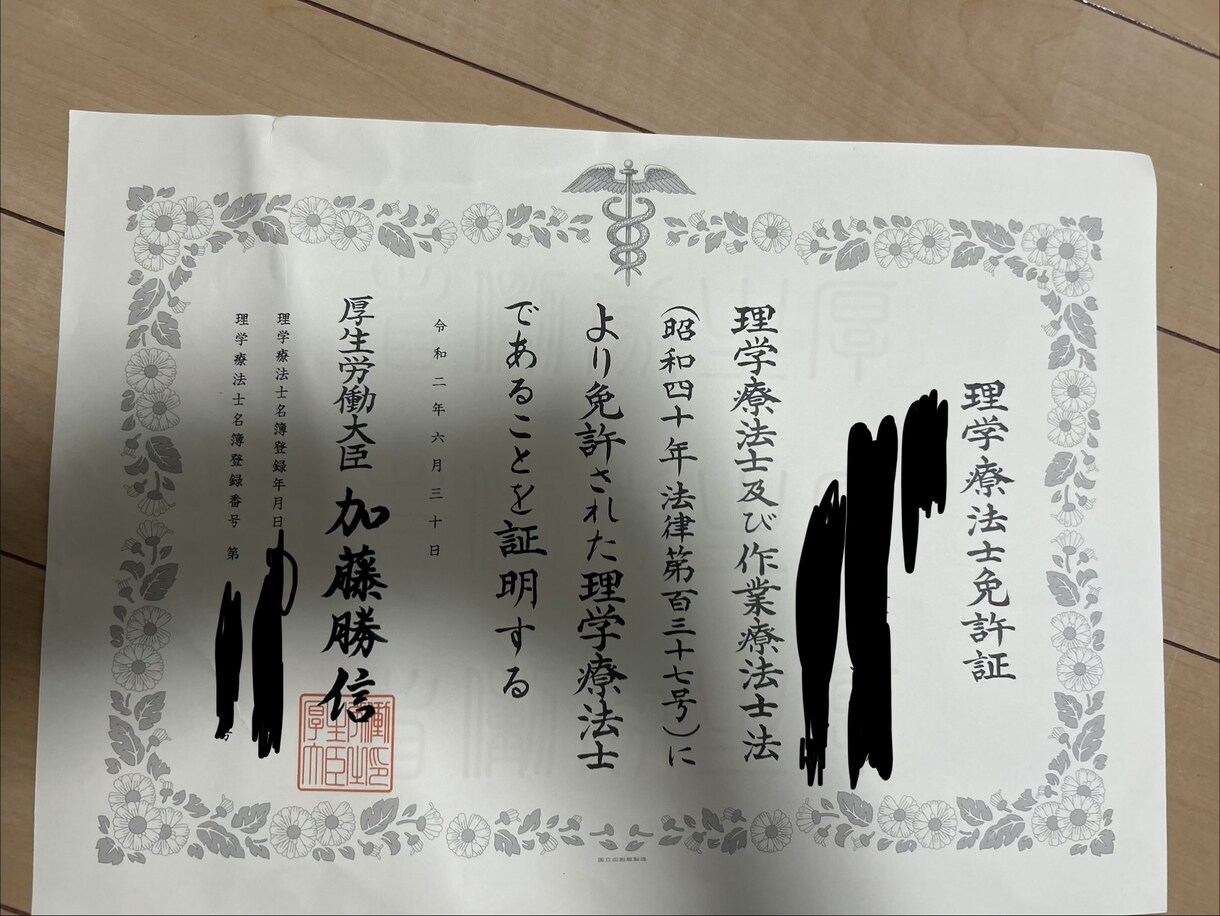 理学療法士免許証
理学療法士及び作業療法士法
(昭和四十年法律第百三十七号)に
より免許された理学療法士
であることを証明する
令和二年六月三十日
厚生労働大臣 加藤勝信
理学療法士名簿登録年月日
理学療法士名簿登録番号 第
号